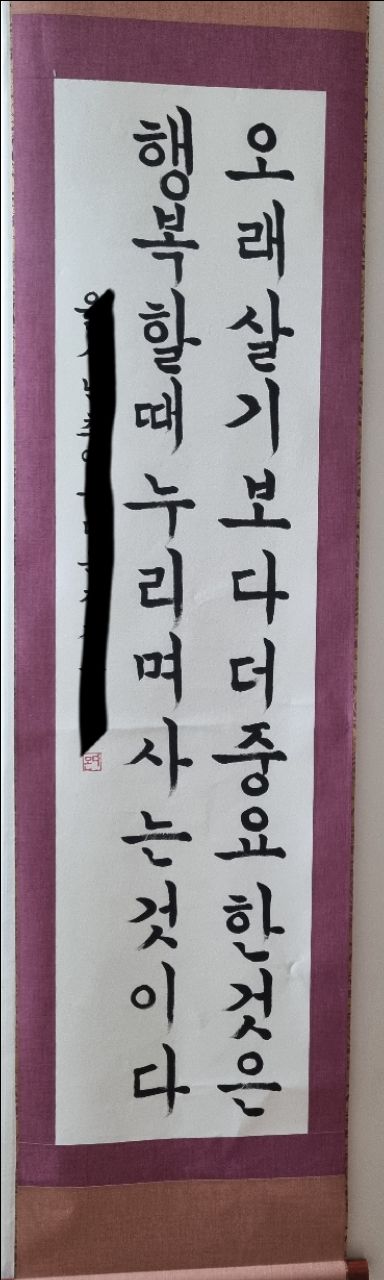 오래살기보다더중요한것은
행복할때누리며사는것이다